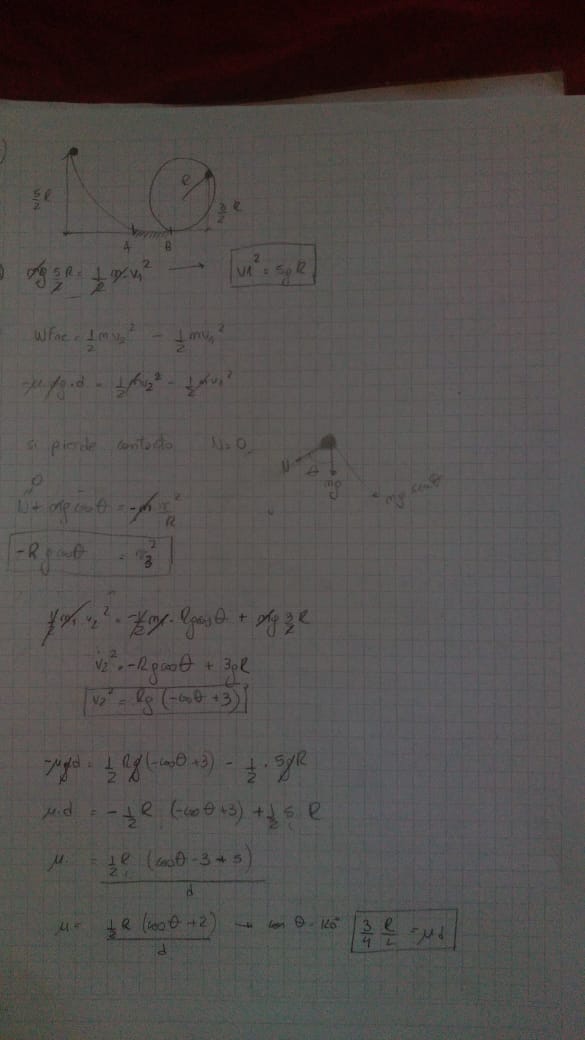 5/2 R
R
3/2 R
A B
mg 5/2 R = 1/2 m v₁² → v₁² = 5gR
WFnc = 1/2 m v₂² - 1/2 m v₁²
-μ mg·d = 1/2 m v₂² - 1/2 m v₁²
si pierde contacto N=0
N θ mg mg cosθ
0
N + mg cosθ = -m v²/R
-R g cosθ = v₃²
1/2 m v₂² = -1/2 m · R g cosθ + mg 3/2 R
v₂² = -R g cosθ + 3gR
v₂² = Rg (-cosθ + 3)
-μgd = 1/2 Rg (-cosθ + 3) - 1/2 · 5gR
μ·d = -1/2 R (-cosθ + 3) + 1/2 5 R
μ = 1/2 R (cosθ - 3 + 5) / d
μ = 1/2 R (cosθ + 2) / d → con θ = 120° 3/4 R/L = μd